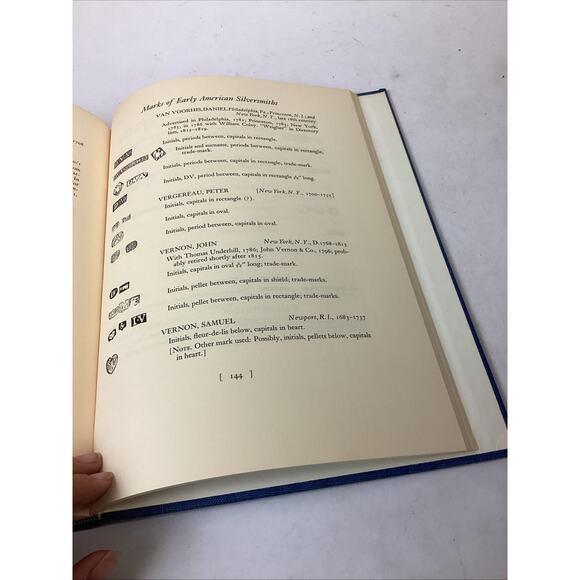 Marks of Early American Silversmiths
VAN VOORHIS, DANIEL Philadelphia, Pa., Princeton, N. J., and
New York, N. Y., late 18th century
Advertised in Philadelphia, 1782; Princeton, 1783; New York,
1785; in 1786 with William Coley. "Weigher" in Directory
lists, 1813-1819.
Initials, periods between, capitals in rectangle.
Initials and surname, periods between, capitals in rectangle;
trade-mark.
Initials, periods between, capitals in rectangle; trade-mark.
Initials, DV, period between, capitals in rectangle long.
VERGEREAU, PETER [New York, N. Y., 1700-1755]
Initials, capitals in rectangle (?).
Initials, capitals in oval.
Initials, period between, capitals in oval.
VERNON, JOHN New York, N. Y., D.1768-1815
With Thomas Underhill, 1786; John Vernon & Co., 1796; prob-
ably retired shortly after 1815.
Initials, capitals in oval long; trade-mark.
Initials, pellet between, capitals in shield; trade-marks.
Initials, pellet between, capitals in rectangle; trade-marks.
VERNON, SAMUEL Newport, R. I., 1683-1737
Initials, fleur-de-lis below, capitals in heart.
[NOTE. Other mark used: Possibly, initials, pellets below, capitals
in heart.]
[ 144 ]